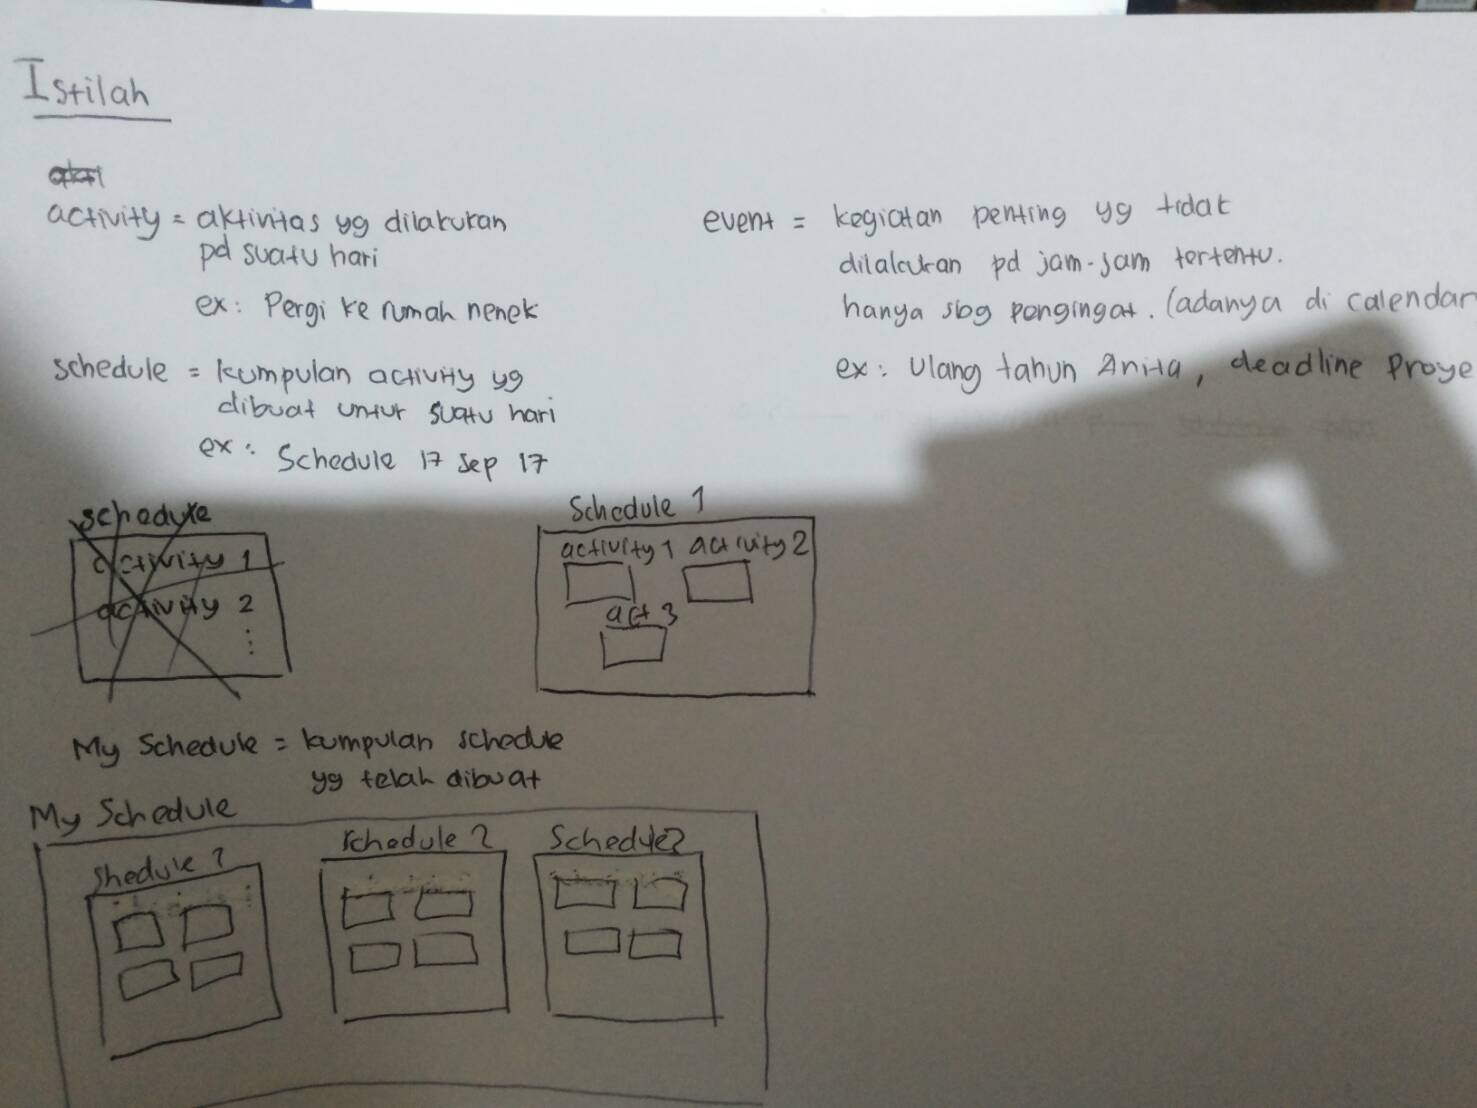 Istilah
activity = aktivitas yg dilakukan
pd suatu hari
ex: Pergi ke rumah nenek
schedule = kumpulan activity yg
dibuat untuk suatu hari
ex: Schedule 17 Sep 17
event = kegiatan penting yg tidak
dilakukan pd jam-jam tertentu.
hanya sbg pengingat. (adanya di calendar
ex: Ulang tahun Anita, deadline Proye
schedule
activity 1
activity 2
Schedule 1
activity 1 activity 2
act 3
My Schedule = kumpulan schedule
yg telah dibuat
My Schedule
Shedule 1
Schedule 2
Schedule